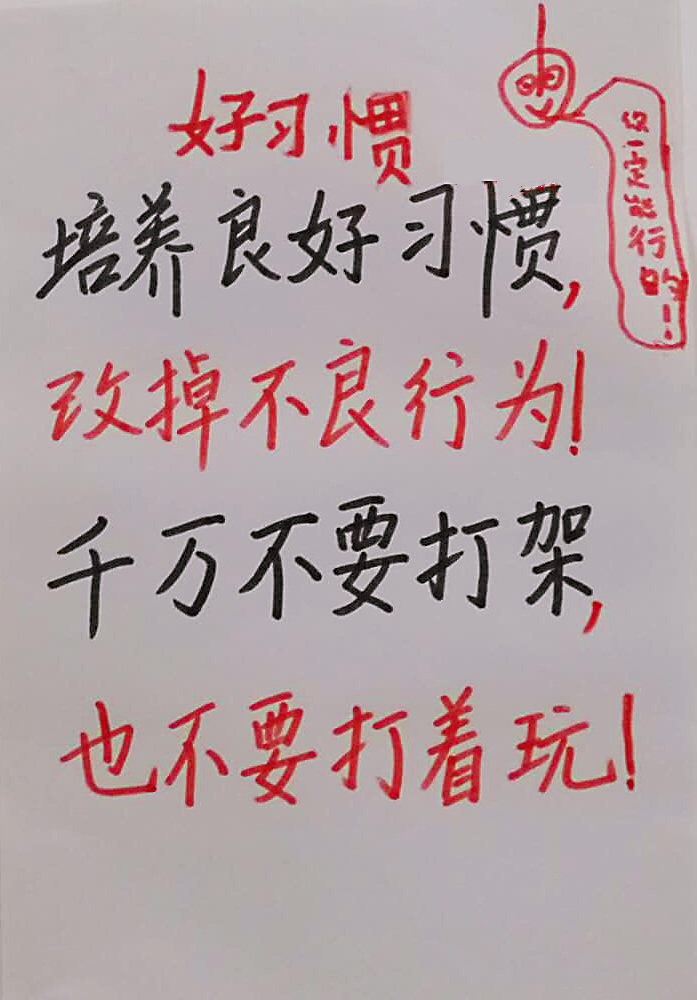 好习惯
你一定能行的!
培养良好习惯,
改掉不良行为!
千万不要打架,
也不要打着玩!